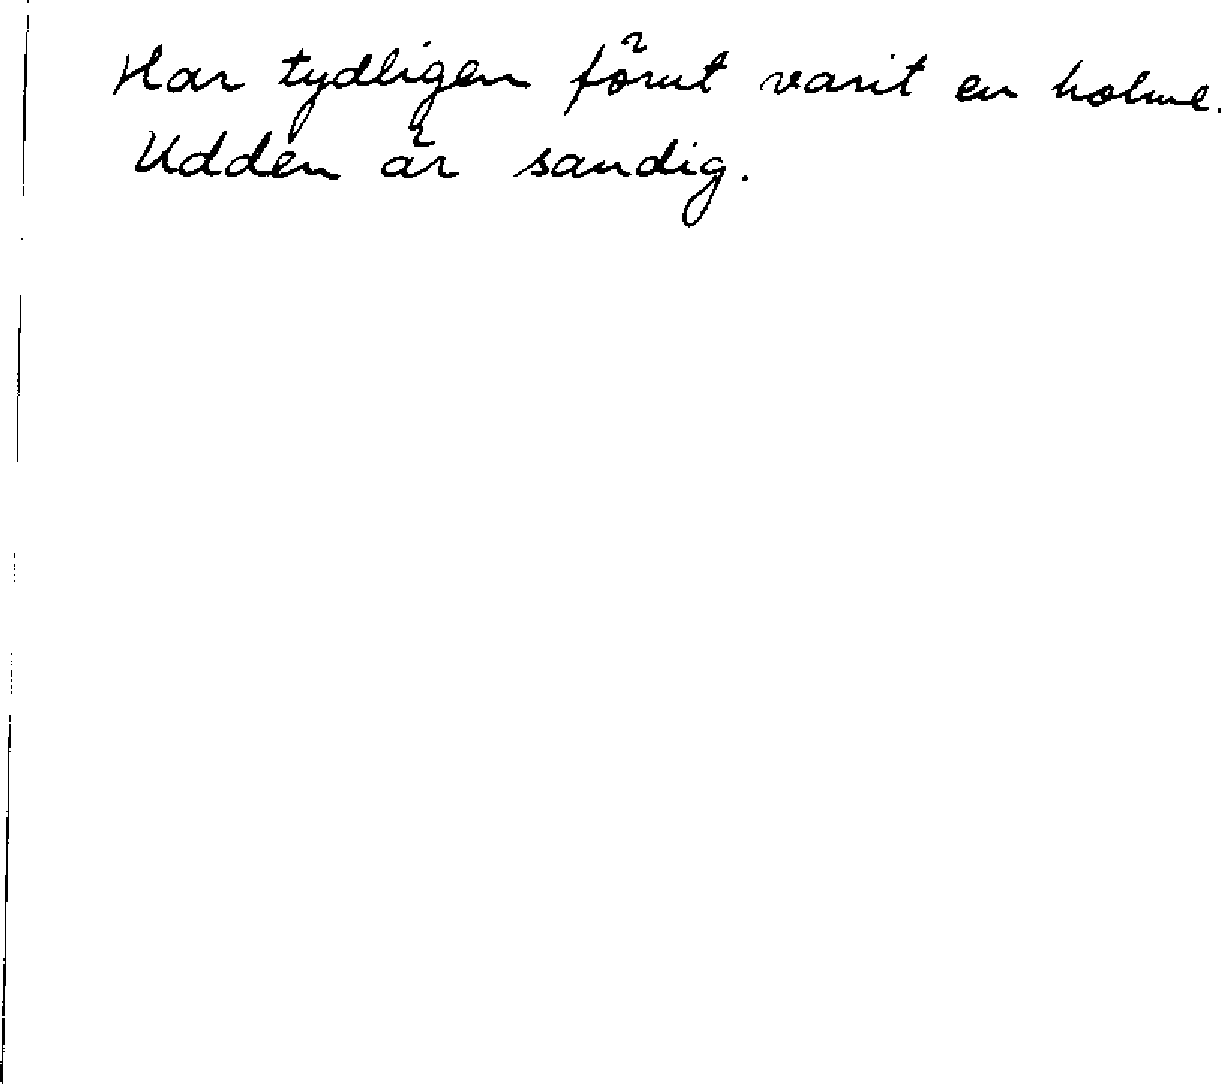 Har tydligen förut varit en holme.
Udden är sandig.